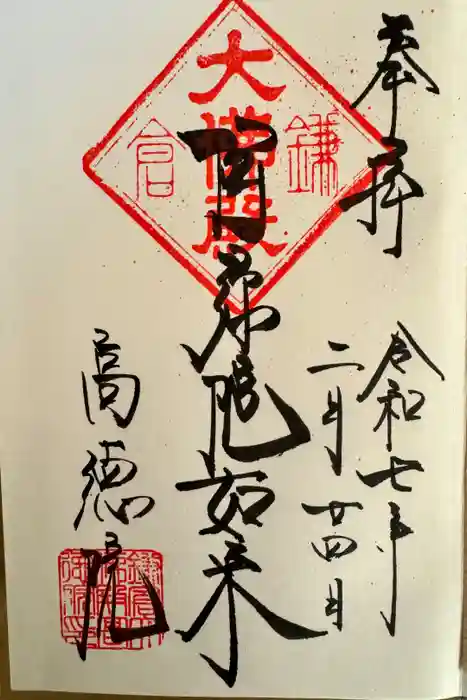 奉拝
令和七年
二月廿四日
鎌倉
大佛殿
阿弥陀如来
高徳院